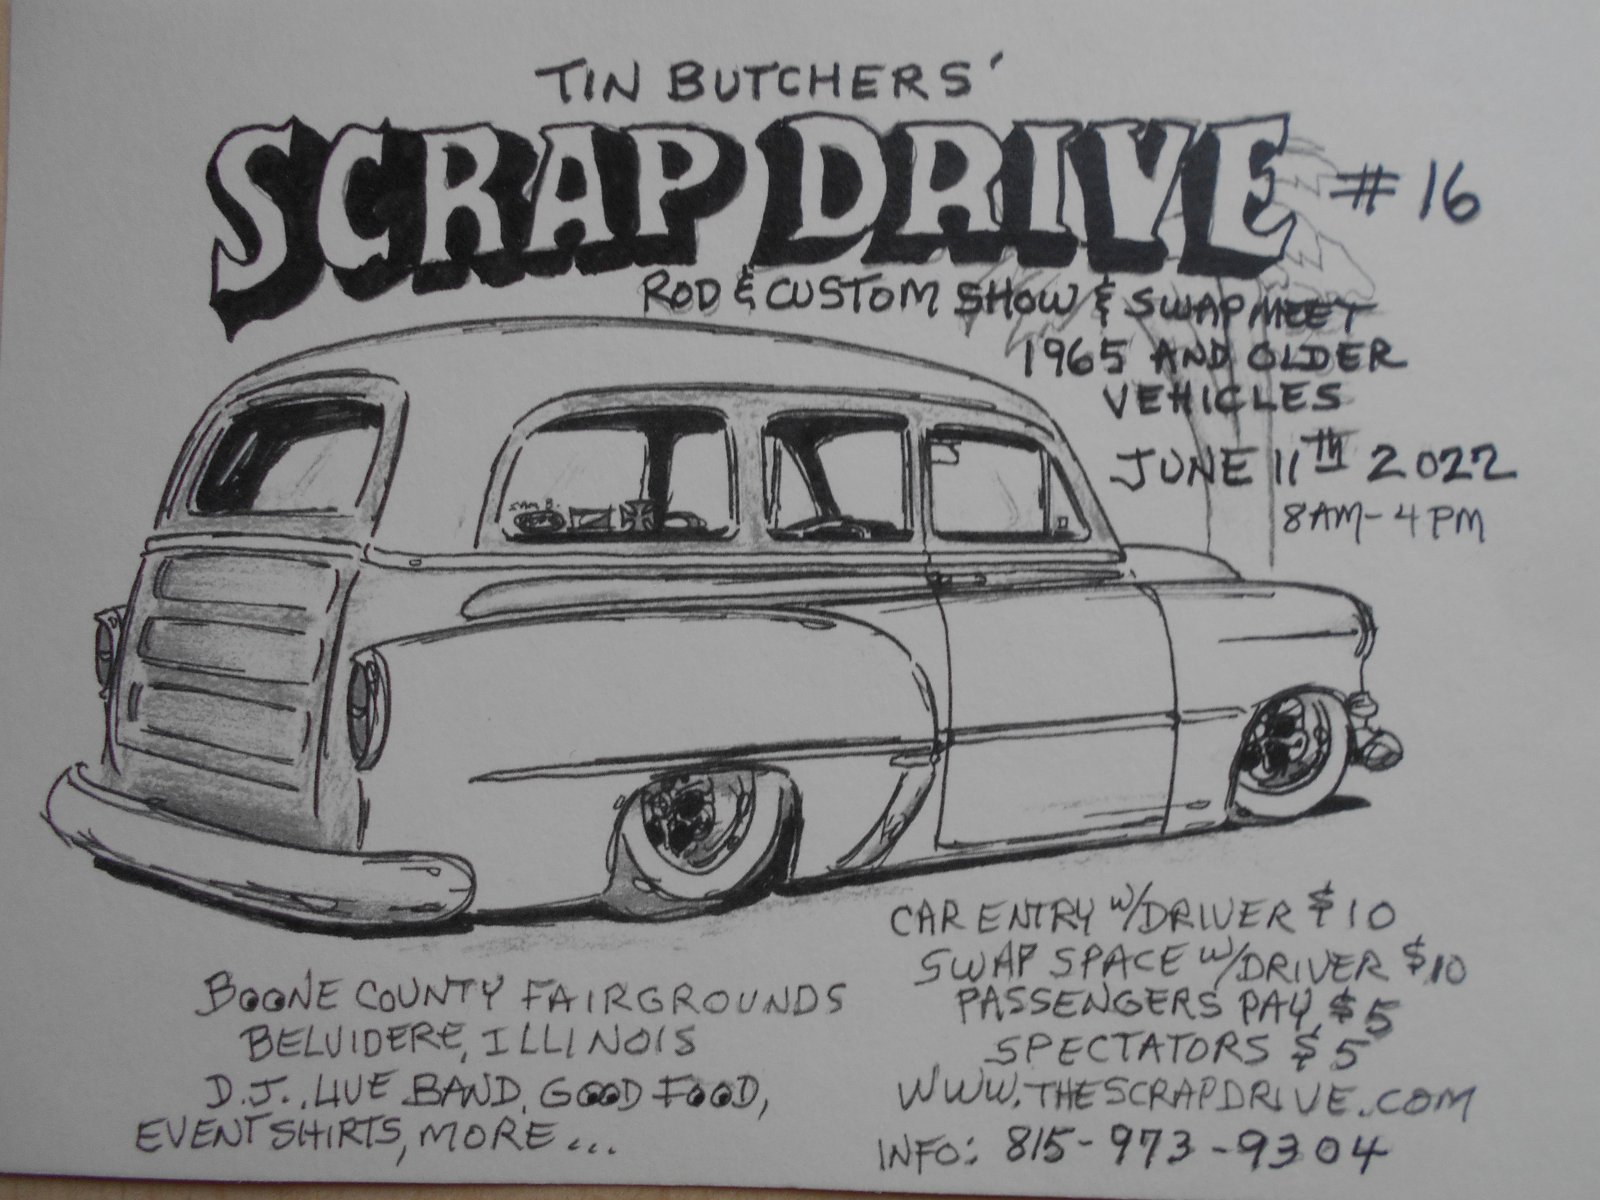 TIN BUTCHERS'
SCRAP DRIVE #16
ROD & CUSTOM SHOW & SWAP MEET
1965 AND OLDER
VEHICLES
JUNE 11TH 2022
8AM-4PM
SAM B.
CAR ENTRY W/DRIVER $10
SWAP SPACE W/DRIVER $10
PASSENGERS PAY $5
SPECTATORS $5
WWW.THESCRAPDRIVE.COM
INFO: 815-973-9304
BOONE COUNTY FAIRGROUNDS
BELVIDERE, ILLINOIS
D.J., LIVE BAND, GOOD FOOD,
EVENT SHIRTS, MORE...